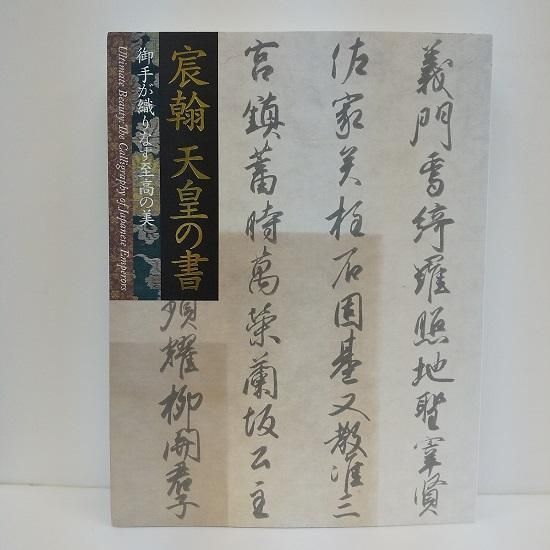 宸翰 天皇の書
御手が織りなす至高の美
Ultimate Beauty: The Calligraphy of Japanese Emperors
義門 綺羅照地聖 賢
佐家 柱石固基又教准三
宮鎮蓄時萬榮蘭坂公主
耀柳開君子